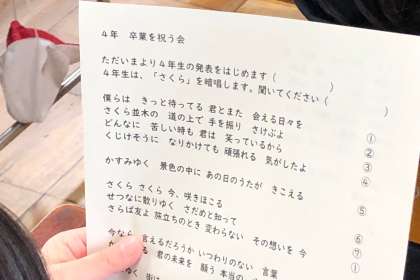 4年 卒業を祝う会
ただいまより4年生の発表をはじめます（ ）
4年生は、「さくら」を暗唱します。聞いてください（ ）
僕らは きっと待ってる 君とまた 会える日々を ①
さくら並木の 道の上で 手を振り さけぶよ ②
どんなに 苦しい時も 君は 笑っているから ③
くじけそうに なりかけても 頑張れる 気がしたよ ④
かすみゆく 景色の中に あの日のうたが きこえる ⑤
さくら さくら 今、咲きほこる
せつなに散りゆく さだめと知って ⑥
さらば友よ 旅立ちのとき 変わらない その想いを 今 ⑦
今なら 言えるだろうか いつわりのない 言葉 ①
かがやける 君の未来を 願う 本当の
ゆく 街は